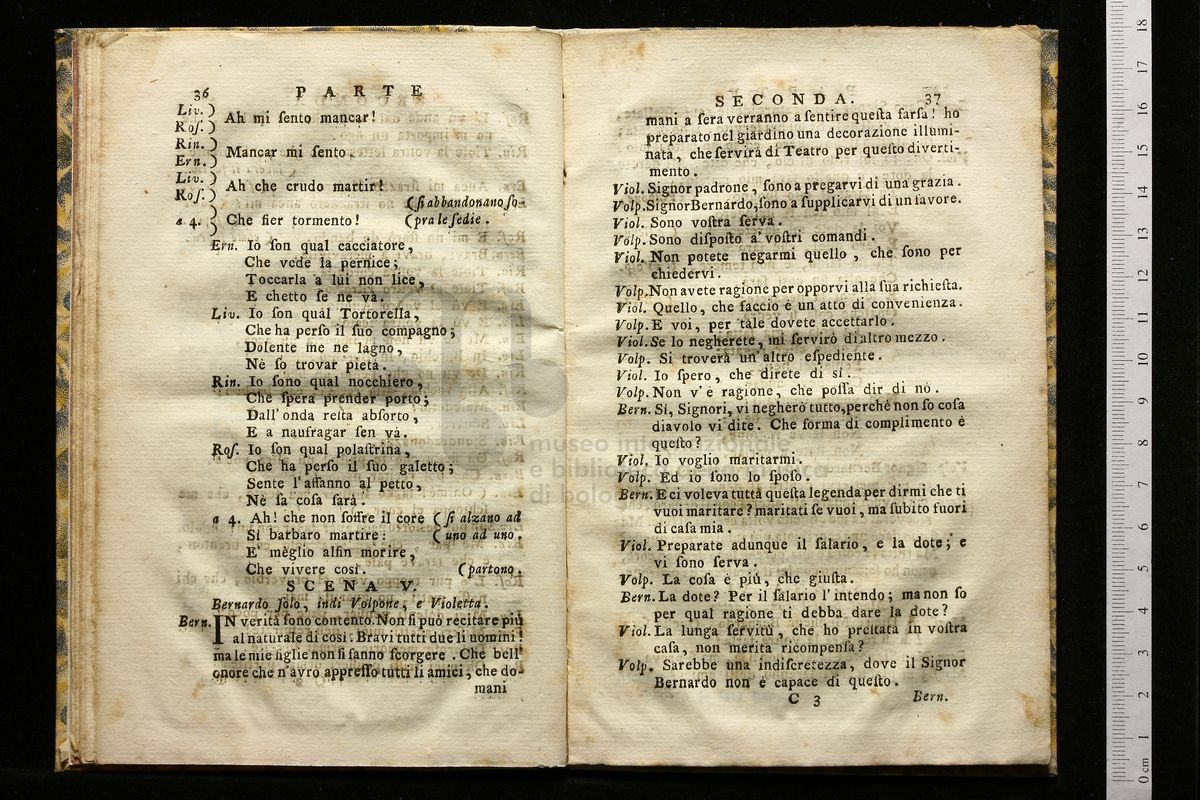 36 PARTE
Liv. )
Roſ. ) Ah mi ſento mancar!
Rin. )
Ern. ) Mancar mi ſento.
Liv. )
Roſ. ) Ah che crudo martir!
(ſi abbandonano ſo-
a 4. ) Che fier tormento! (pra le ſedie.
Ern. Io ſon qual cacciatore,
Che vede la pernice;
Toccarla a lui non lice,
E chetto ſe ne và.
Liv. Io ſon qual Tortorella,
Che ha perſo il ſuo compagno;
Dolente me ne lagno,
Nè ſo trovar pietà.
Rin. Io ſono qual nocchiero,
Che ſpera prender porto;
Dall' onda reſta abſorto,
E a naufragar ſen và.
Roſ. Io ſon qual polaſtrina,
Che ha perſo il ſuo galetto;
Sente l'affanno al petto,
Nè ſa coſa farà.
a 4. Ah! che non ſoffre il core (ſi alzano ad
Sì barbaro martire: (uno ad uno.
E' mèglio alfin morire,
Che vivere così. (partono.
SCENA V.
Bernardo ſolo, indi Volpone, e Violetta.
Bern. IN verità ſono contento. Non ſi può recitare più
al naturale di così. Bravi tutti due li uomini!
ma le mie figlie non ſi fanno ſcorgere. Che bell'
onore che n'avrò appreſſo tutti li amici, che do-
mani
SECONDA. 37
mani a ſera verranno a ſentire queſta farſa! ho
preparato nel giardino una decorazione illumi-
nata, che ſervirà di Teatro per queſto diverti-
mento.
Viol. Signor padrone, ſono a pregarvi di una grazia.
Volp. Signor Bernardo, ſono a ſupplicarvi di un favore.
Viol. Sono voſtra ſerva.
Volp. Sono diſpoſto a' voſtri comandi.
Viol. Non potete negarmi quello, che ſono per
chiedervi.
Volp. Non avete ragione per opporvi alla ſua richieſta.
Viol. Quello, che faccio è un atto di convenienza.
Volp. E voi, per tale dovete accettarlo.
Viol. Se lo negherete, mi ſervirò di altro mezzo.
Volp. Si troverà un altro eſpediente.
Viol. Io ſpero, che direte di sì.
Volp. Non v'è ragione, che poſſa dir di nò.
Bern. Sì, Signori, vi negherò tutto, perchè non ſo coſa
diavolo vi dite. Che forma di complimento è
queſto?
Viol. Io voglio maritarmi.
Volp. Ed io ſono lo ſpoſo.
Bern. E ci voleva tutta queſta legenda per dirmi che ti
vuoi maritare? maritati ſe vuoi, ma ſubito fuori
di caſa mia.
Viol. Preparate adunque il ſalario, e la dote; e
vi ſono ſerva.
Volp. La coſa è più, che giuſta.
Bern. La dote? Per il ſalario l'intendo; ma non ſo
per qual ragione ti debba dare la dote?
Viol. La lunga ſervitù, che ho preſtata in voſtra
caſa, non merita ricompenſa?
Volp. Sarebbe una indiſcretezza, dove il Signor
Bernardo non è capace di queſto.
C 3 Bern.